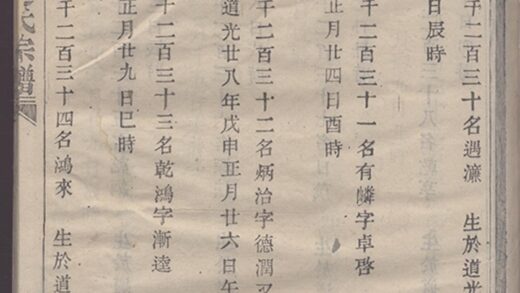 千二百三十名遇濂 生於道光
日辰時
千二百三十一名有麟字卓啓
正月廿四日酉時
千二百三十二名炳治字德潤又
道光廿八年戊申正月廿六日午
千二百三十三名乾鴻字漸逵
正月廿九日巳時
千二百三十四名鴻來 生於道
氏宗譜